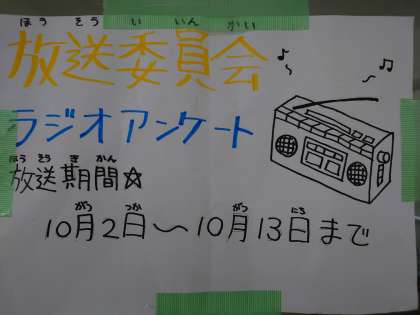 ほう そう い いん かい
放送委員会
ラジオアンケート
ほう そう き かん
放送期間☆
がつ つか がつ にち
10月2日～10月13日まで